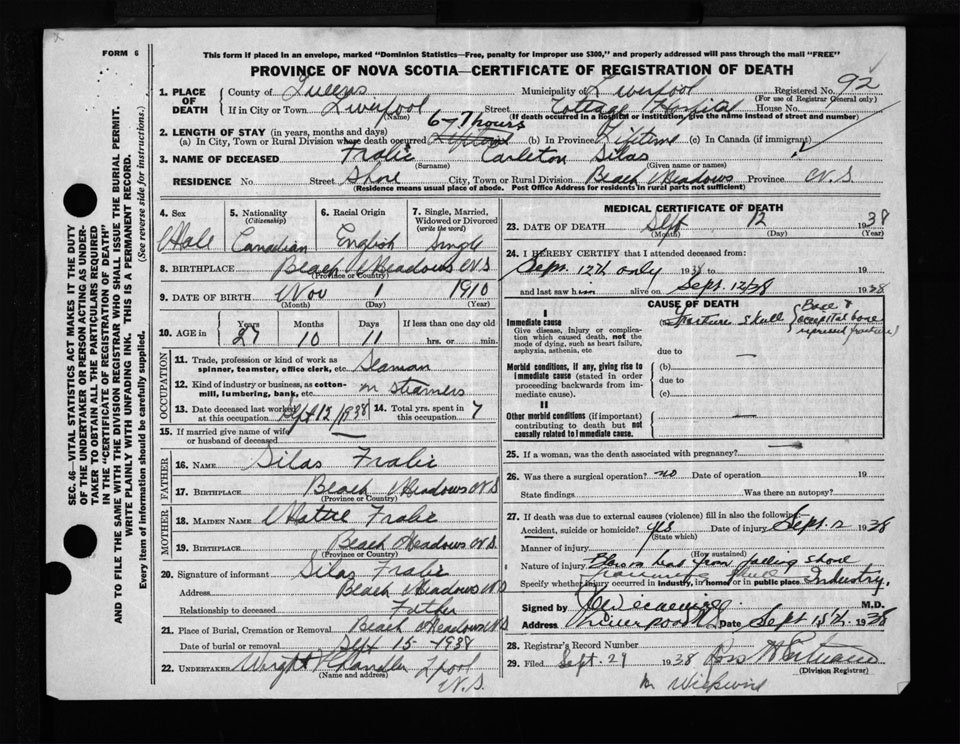 FORM 6
This form if placed in an envelope, marked "Dominion Statistics—Free, penalty for improper use $300," and properly addressed will pass through the mail "FREE"
PROVINCE OF NOVA SCOTIA—CERTIFICATE OF REGISTRATION OF DEATH
92
1. PLACE OF DEATH County of Queens Municipality of Liverpool Registered No.
(For use of Registrar General only)
If in City or Town Liverpool Street Cottage Hospital House No.
(Name) (If death occurred in a hospital or institution, give the name instead of street and number)
6-7 hours
2. LENGTH OF STAY (in years, months and days)
(a) In City, Town or Rural Division where death occurred Lifetime (b) In Province Lifetime (c) In Canada (if immigrant)
3. NAME OF DECEASED Fralic Carleton Silas
(Surname) (Given name or names)
RESIDENCE No. Street Shore City, Town or Rural Division Beach Meadows Province N.S
(Residence means usual place of abode. Post Office Address for residents in rural parts not sufficient)
4. Sex Male
5. Nationality (Citizenship) Canadian
6. Racial Origin English
7. Single, Married, Widowed or Divorced (write the word) Single
8. BIRTHPLACE Beach Meadows N.S
(Province or Country)
9. DATE OF BIRTH Nov 1 1910
(Month) (Day) (Year)
10. AGE in Years 27 Months 10 Days 11 If less than one day hrs. or min.
OCCUPATION
11. Trade, profession or kind of work as spinner, teamster, office clerk, etc. Seaman
12. Kind of industry or business, as cotton-mill, lumbering, bank, etc. on Steamers
13. Date deceased last worked at this occupation Sept 12/1938 14. Total yrs. spent in this occupation 7
15. If married give name of wife or husband of deceased —
FATHER
16. NAME Silas Fralic
17. BIRTHPLACE Beach Meadows N.S
(Province or Country)
MOTHER
18. MAIDEN NAME Hattie Fralic
19. BIRTHPLACE Beach Meadows N.S
(Province or Country)
20. Signature of informant Silas Fralic
Address Beach Meadows N.S
Relationship to deceased Father
21. Place of Burial, Cremation or Removal Beach Meadows N.S
Date of burial or removal Sept 15 1938
22. UNDERTAKER Wright & Chandler L'pool N.S.
(Name and address)
MEDICAL CERTIFICATE OF DEATH
23. DATE OF DEATH Sept 12 1938
(Month) (Day) (Year)
24. I HEREBY CERTIFY that I attended deceased from:
Sept. 12th only 1938 to 19
and last saw him alive on Sept. 12/38 1938
CAUSE OF DEATH
I
Immediate cause
Give disease, injury or complication which caused death, not the mode of dying, such as heart failure, asphyxia, asthenia, etc
(a) Fracture Skull (Base & occipital bone
due to —
Morbid conditions, if any, giving rise to immediate cause (stated in order proceeding backwards from immediate cause).
(b)
due to
(c)
II
Other morbid conditions (if important) contributing to death but not causally related to immediate cause. —
25. If a woman, was the death associated with pregnancy?
26. Was there a surgical operation? no Date of operation 19
State findings Was there an autopsy?
27. If death was due to external causes (violence) fill in also the following:
Accident, suicide or homicide? yes Date of injury Sept. 12 1938
(State which)
Manner of injury
(How sustained)
Nature of injury
Specify whether injury occurred in industry, in home or in public place Industry.
Signed by M.D.
Address Liverpool N.S Date Sept 15th 1938
28. Registrar's Record Number
29. Filed Sept. 29 1938
(Division Registrar)
SEC. 46—VITAL STATISTICS ACT MAKES IT THE DUTY OF THE UNDERTAKER OR PERSON ACTING AS UNDERTAKER TO OBTAIN ALL THE PARTICULARS REQUIRED IN THE "CERTIFICATE OF REGISTRATION OF DEATH" AND TO FILE THE SAME WITH THE DIVISION REGISTRAR WHO SHALL ISSUE THE BURIAL PERMIT.
WRITE PLAINLY WITH UNFADING INK. THIS IS A PERMANENT RECORD.
Every item of information should be carefully supplied. (See reverse side for instructions.)